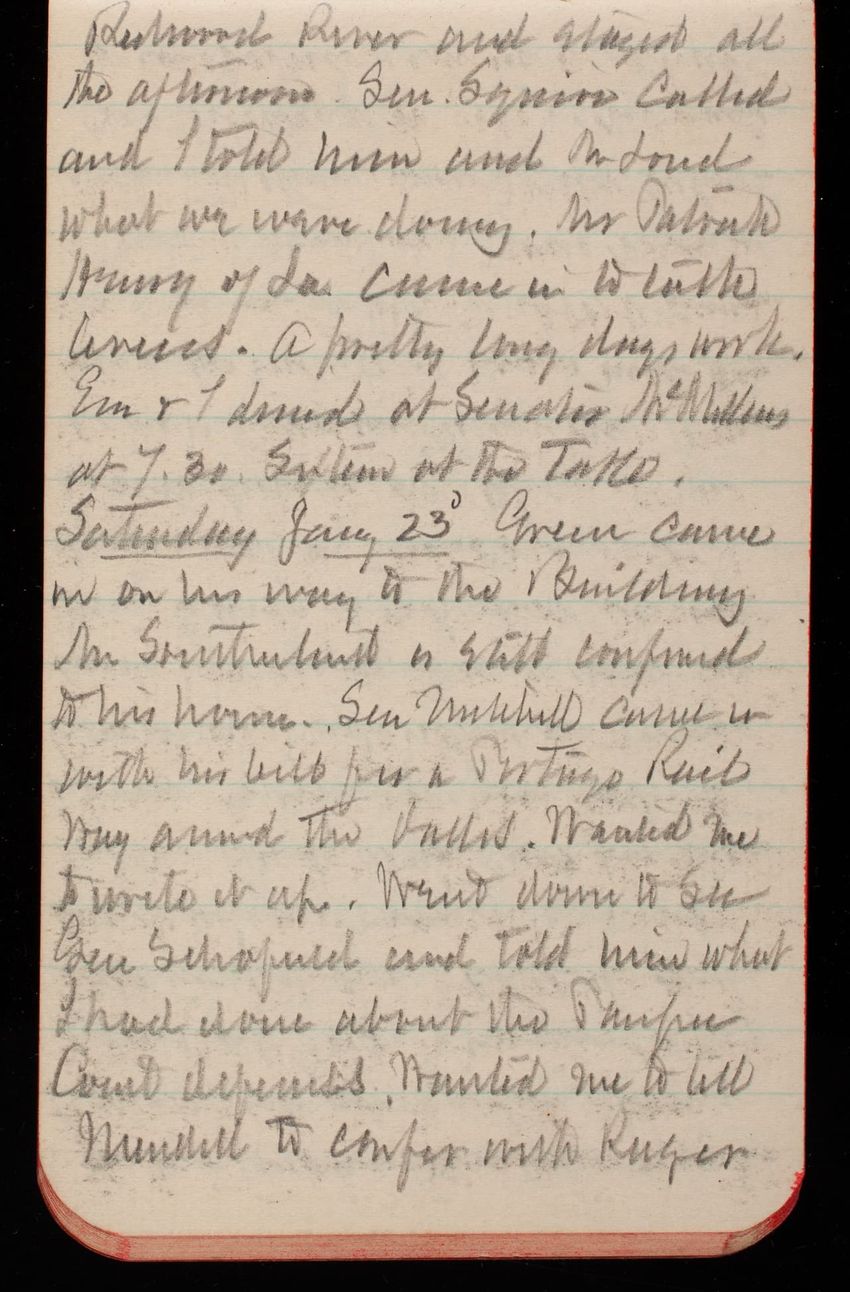 Redwood River and stayed all
the afternoon. Sen. Squire called
and I told him and Mr Loud
what we were doing. Mr Patrick
Henry of La. came in to talk
levees. A pretty long days work.
Em & I dined at Senator McMillans
at 7.30. Sixteen at the table.
Saturday Jany 23d Green came
in on his way to the Building
Mr is still confined
to his home. Sen Mitchell came in
with his bill for a Portage Rail
Way around the Dalles. Wanted me
to write it up. Went down to see
Gen Schofield and told him what
I had done about the Pacific
Coast defenses. Wanted me to tell
Mendell to confer with Ruger